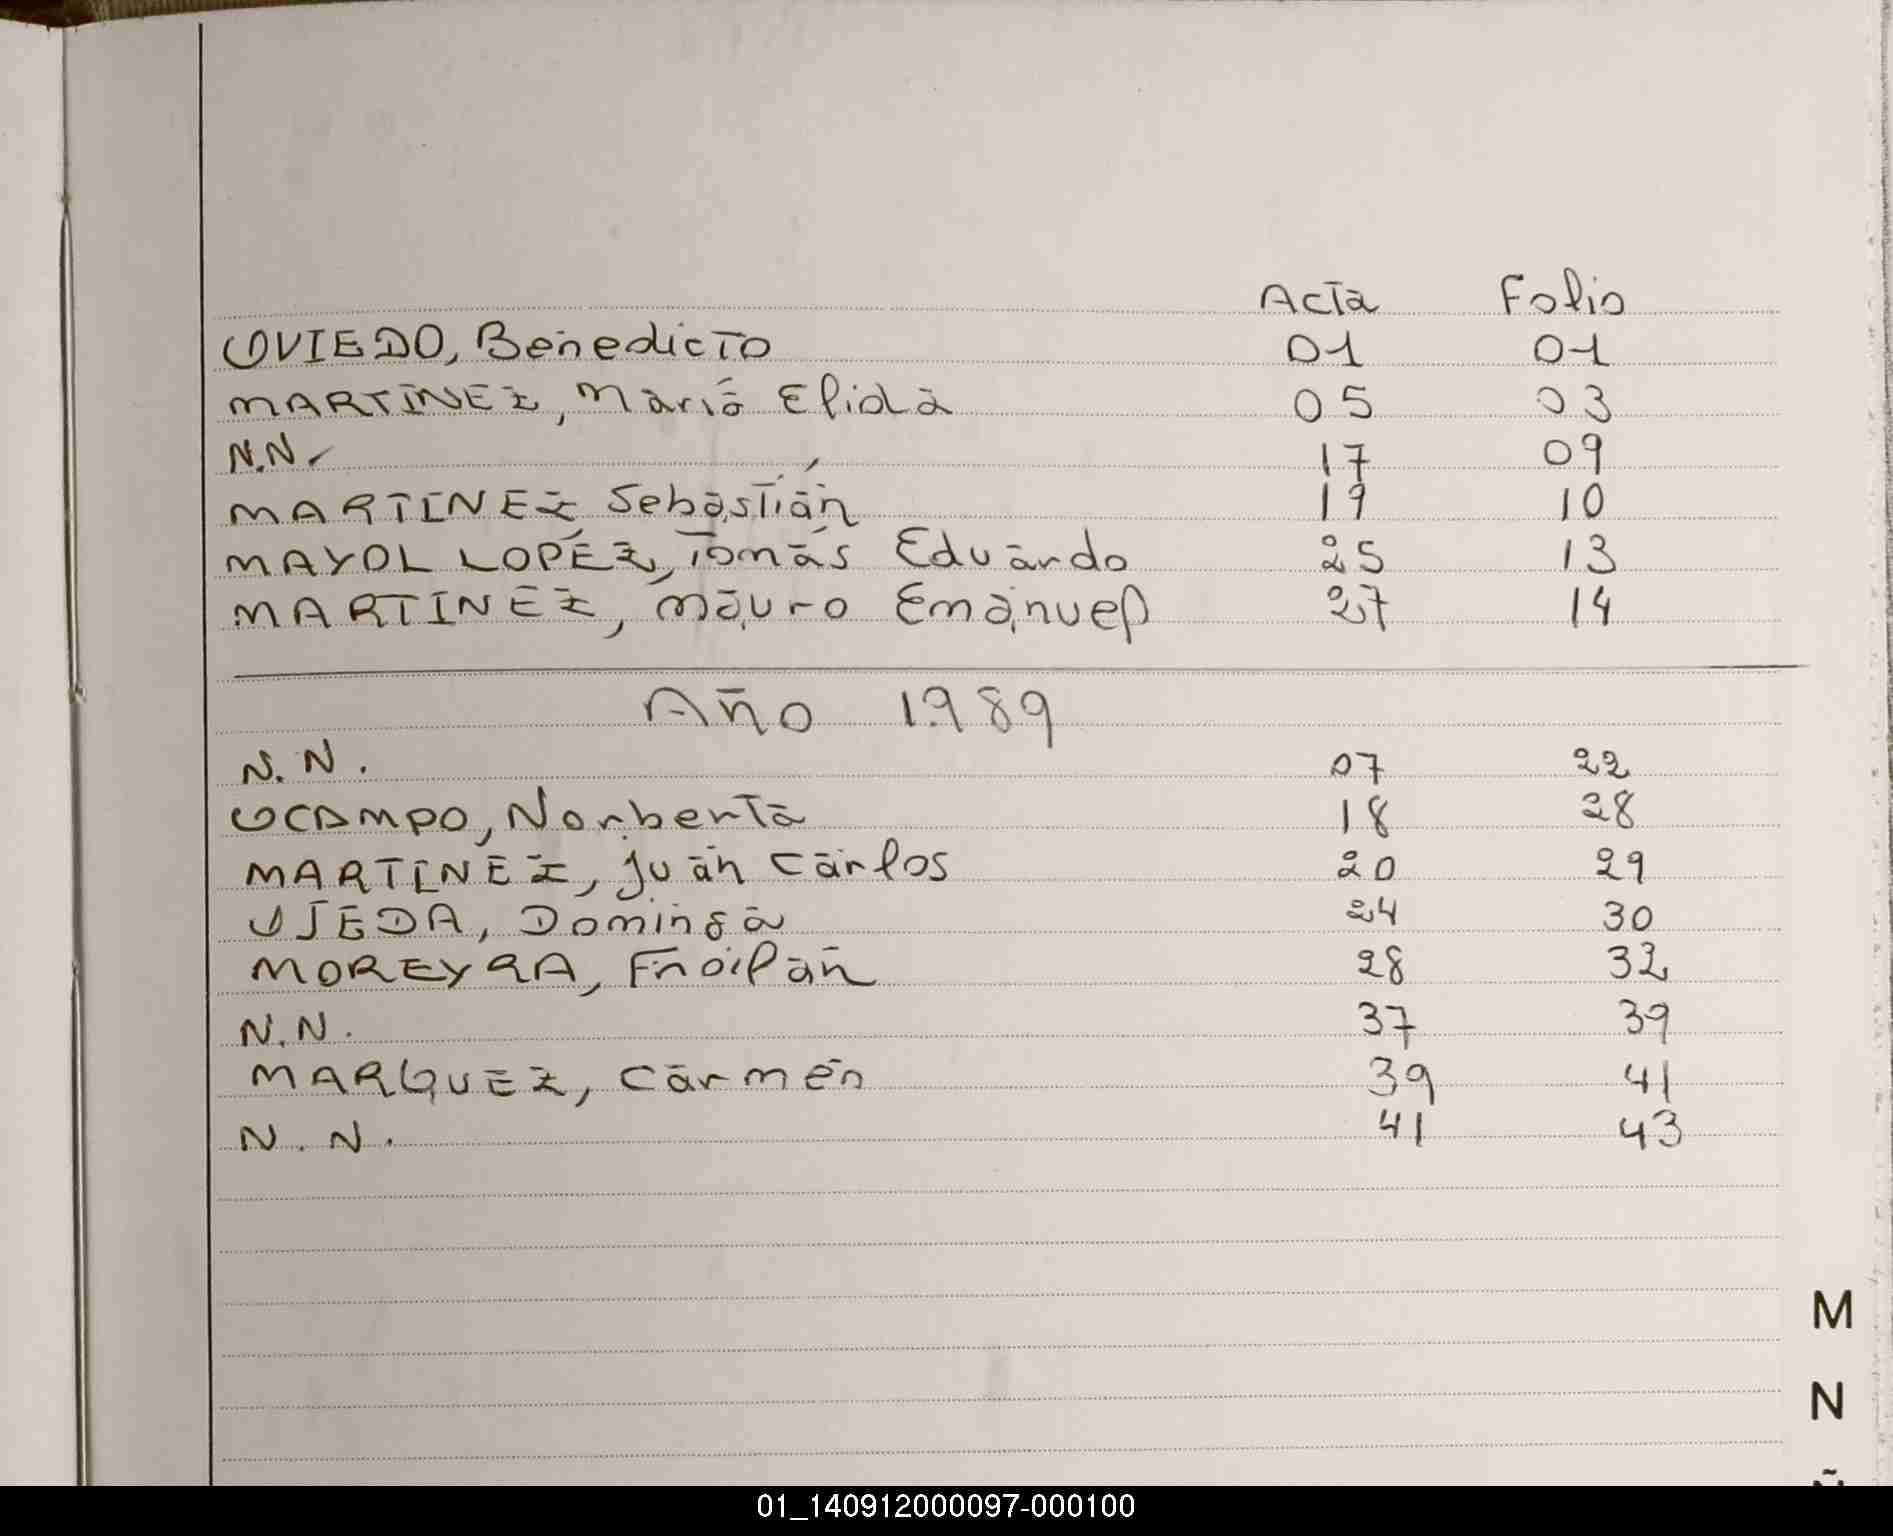 Acta Folio
OVIEDO, Benedicto 01 01
MARTINEZ, María Elida 05 03
N.N. 17 09
MARTINEZ Sebastián 19 10
MAYOL LOPÉZ, Tomás Eduardo 25 13
MARTINEZ, Mauro Emanuel 27 14
Año 1989
N.N. 07 22
OCAMPO, Norberta 18 28
MARTINEZ, Juan Carlos 20 29
OJEDA, Dominga 24 30
MOREYRA, Froilan 28 32
N.N. 37 39
MARQUEZ, Carmen 39 41
N.N. 41 43
M
N
01_140912000097-000100